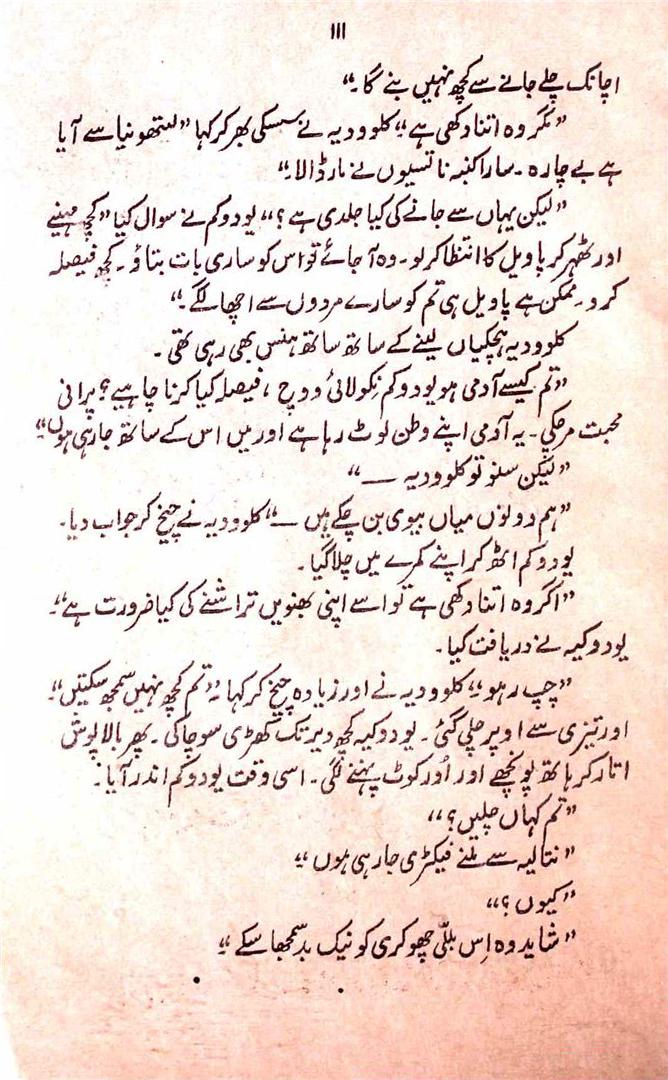 ۱۱۱
اچانک چلے جانے سے کچھ نہیں بنے گا۔“
”مگر وہ اتنا دکھی ہے“ کلوودیہ نے سسکی بھر کر کہا ”لتھونیا سے آیا
ہے بے چارہ۔ سارا کنبہ ناتسیوں نے مار ڈالا۔“
”لیکن یہاں سے جانے کی کیا جلدی ہے؟“ یودوکم نے سوال کیا ”کچھ مہینے
اور ٹھہر کر پاویل کا انتظا کر لو۔ وہ آ جائے تو اس کو ساری بات بتاؤ۔ کچھ فیصلہ
کرو۔ ممکن ہے پاویل ہی تم کو سارے مردوں سے اچھا لگے۔“
کلوودیہ ہچکیاں لینے کے ساتھ ساتھ ہنس بھی رہی تھی۔
”تم کیسے آدمی ہو یودوکم نکولائی ووچ، فیصلہ کیا کرنا چاہیے؟ پرانی
محبت مر چکی۔ یہ آدمی اپنے وطن لوٹ رہا ہے اور میں اس کے ساتھ جا رہی ہوں“
”لیکن سنو تو کلوودیہ —“
”ہم دونوں میاں بیوی بن چکے ہیں —“ کلوودیہ نے چیخ کر جواب دیا۔
یودوکم اٹھ کر اپنے کمرے میں چلا گیا۔
”اگر وہ اتنا دکھی ہے تو اسے اپنی بھنویں تراشنے کی کیا ضرورت ہے“۔
یودوکیہ نے دریافت کیا۔
”چپ رہو“ کلوودیہ نے اور زیادہ چیخ کر کہا ”تم کچھ نہیں سمجھ سکتیں“۔
اور تیزی سے اوپر چلی گئی۔ یودوکیہ کچھ دیر تک کھڑی سوچا کی۔ پھر بالا پوش
اتار کر ہاتھ پونچھے اور اُورکوٹ پہننے لگی۔ اسی وقت یودوکم اندر آیا۔
”تم کہاں چلیں؟“
”نتالیہ سے ملنے فیکٹری جا رہی ہوں“
”کیوں؟“
”شاید وہ اِس بللّی چھوکری کو نیک بد سمجھا سکے“۔